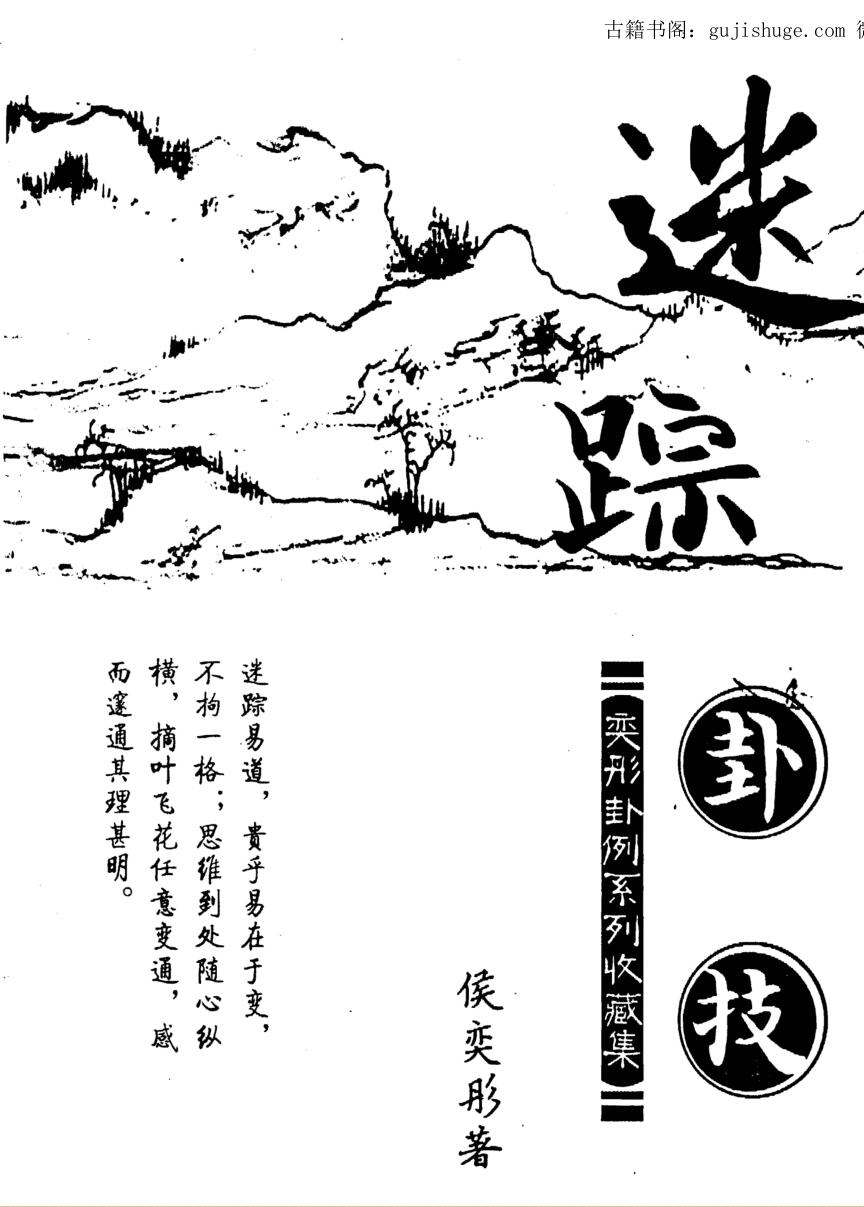 古籍书阁：gujishuge.com
迷
踪
卦
技
奕彤卦例系列收藏集
侯奕彤著
迷踪易道，貴乎易在于变，
不拘一格；思维到处随心纵
横，摘叶飞花任意变通，感
而邃通其理甚明。